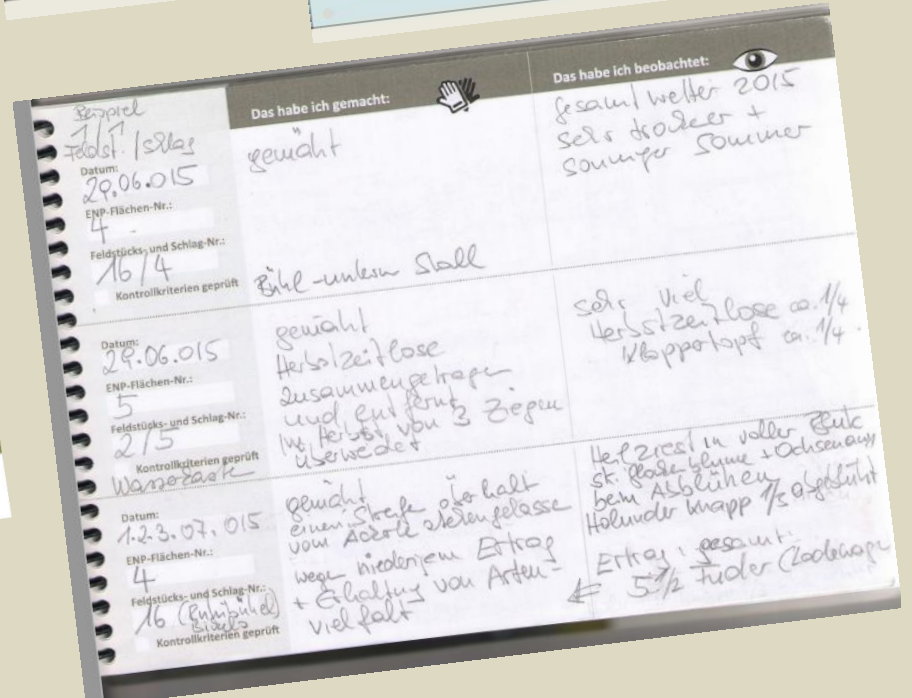 Das habe ich gemacht:
Das habe ich beobachtet:
Beispiel
1/1
Feldst. / Schlag
Datum:
29.06.015
ENP-Flächen-Nr.:
4
Feldstücks- und Schlag-Nr.:
16/4
Kontrollkriterien geprüft
gemäht
Bühl-unterm Stall
Gesamtwetter 2015
sehr trockener +
sonniger Sommer
Datum:
29.06.015
ENP-Flächen-Nr.:
5
Feldstücks- und Schlag-Nr.:
2/5
Kontrollkriterien geprüft
gemäht
Herbstzeitlose
zusammengetragen
und entfernt
im Herbst von 3 Ziegen
überweidet
sehr viel
Herbstzeitlose ca. 1/4
Klappertopf ca. 1/4
Datum:
1.2.3.07.015
ENP-Flächen-Nr.:
4
Feldstücks- und Schlag-Nr.:
16
Kontrollkriterien geprüft
gemäht
einen Streifen oberhalb
vom Acker stehengelassen
wegen niederjem Ertrag
+ Erhaltung von Arten-
vielfalt
Heilziest in voller Blüte
st. Glockenblume + Ochsenaug
beim Abblühen
Holunder knapp 1/3 abgeblüht
Ertrag: gesamt:
5 1/2 Fuder (Ladewagen